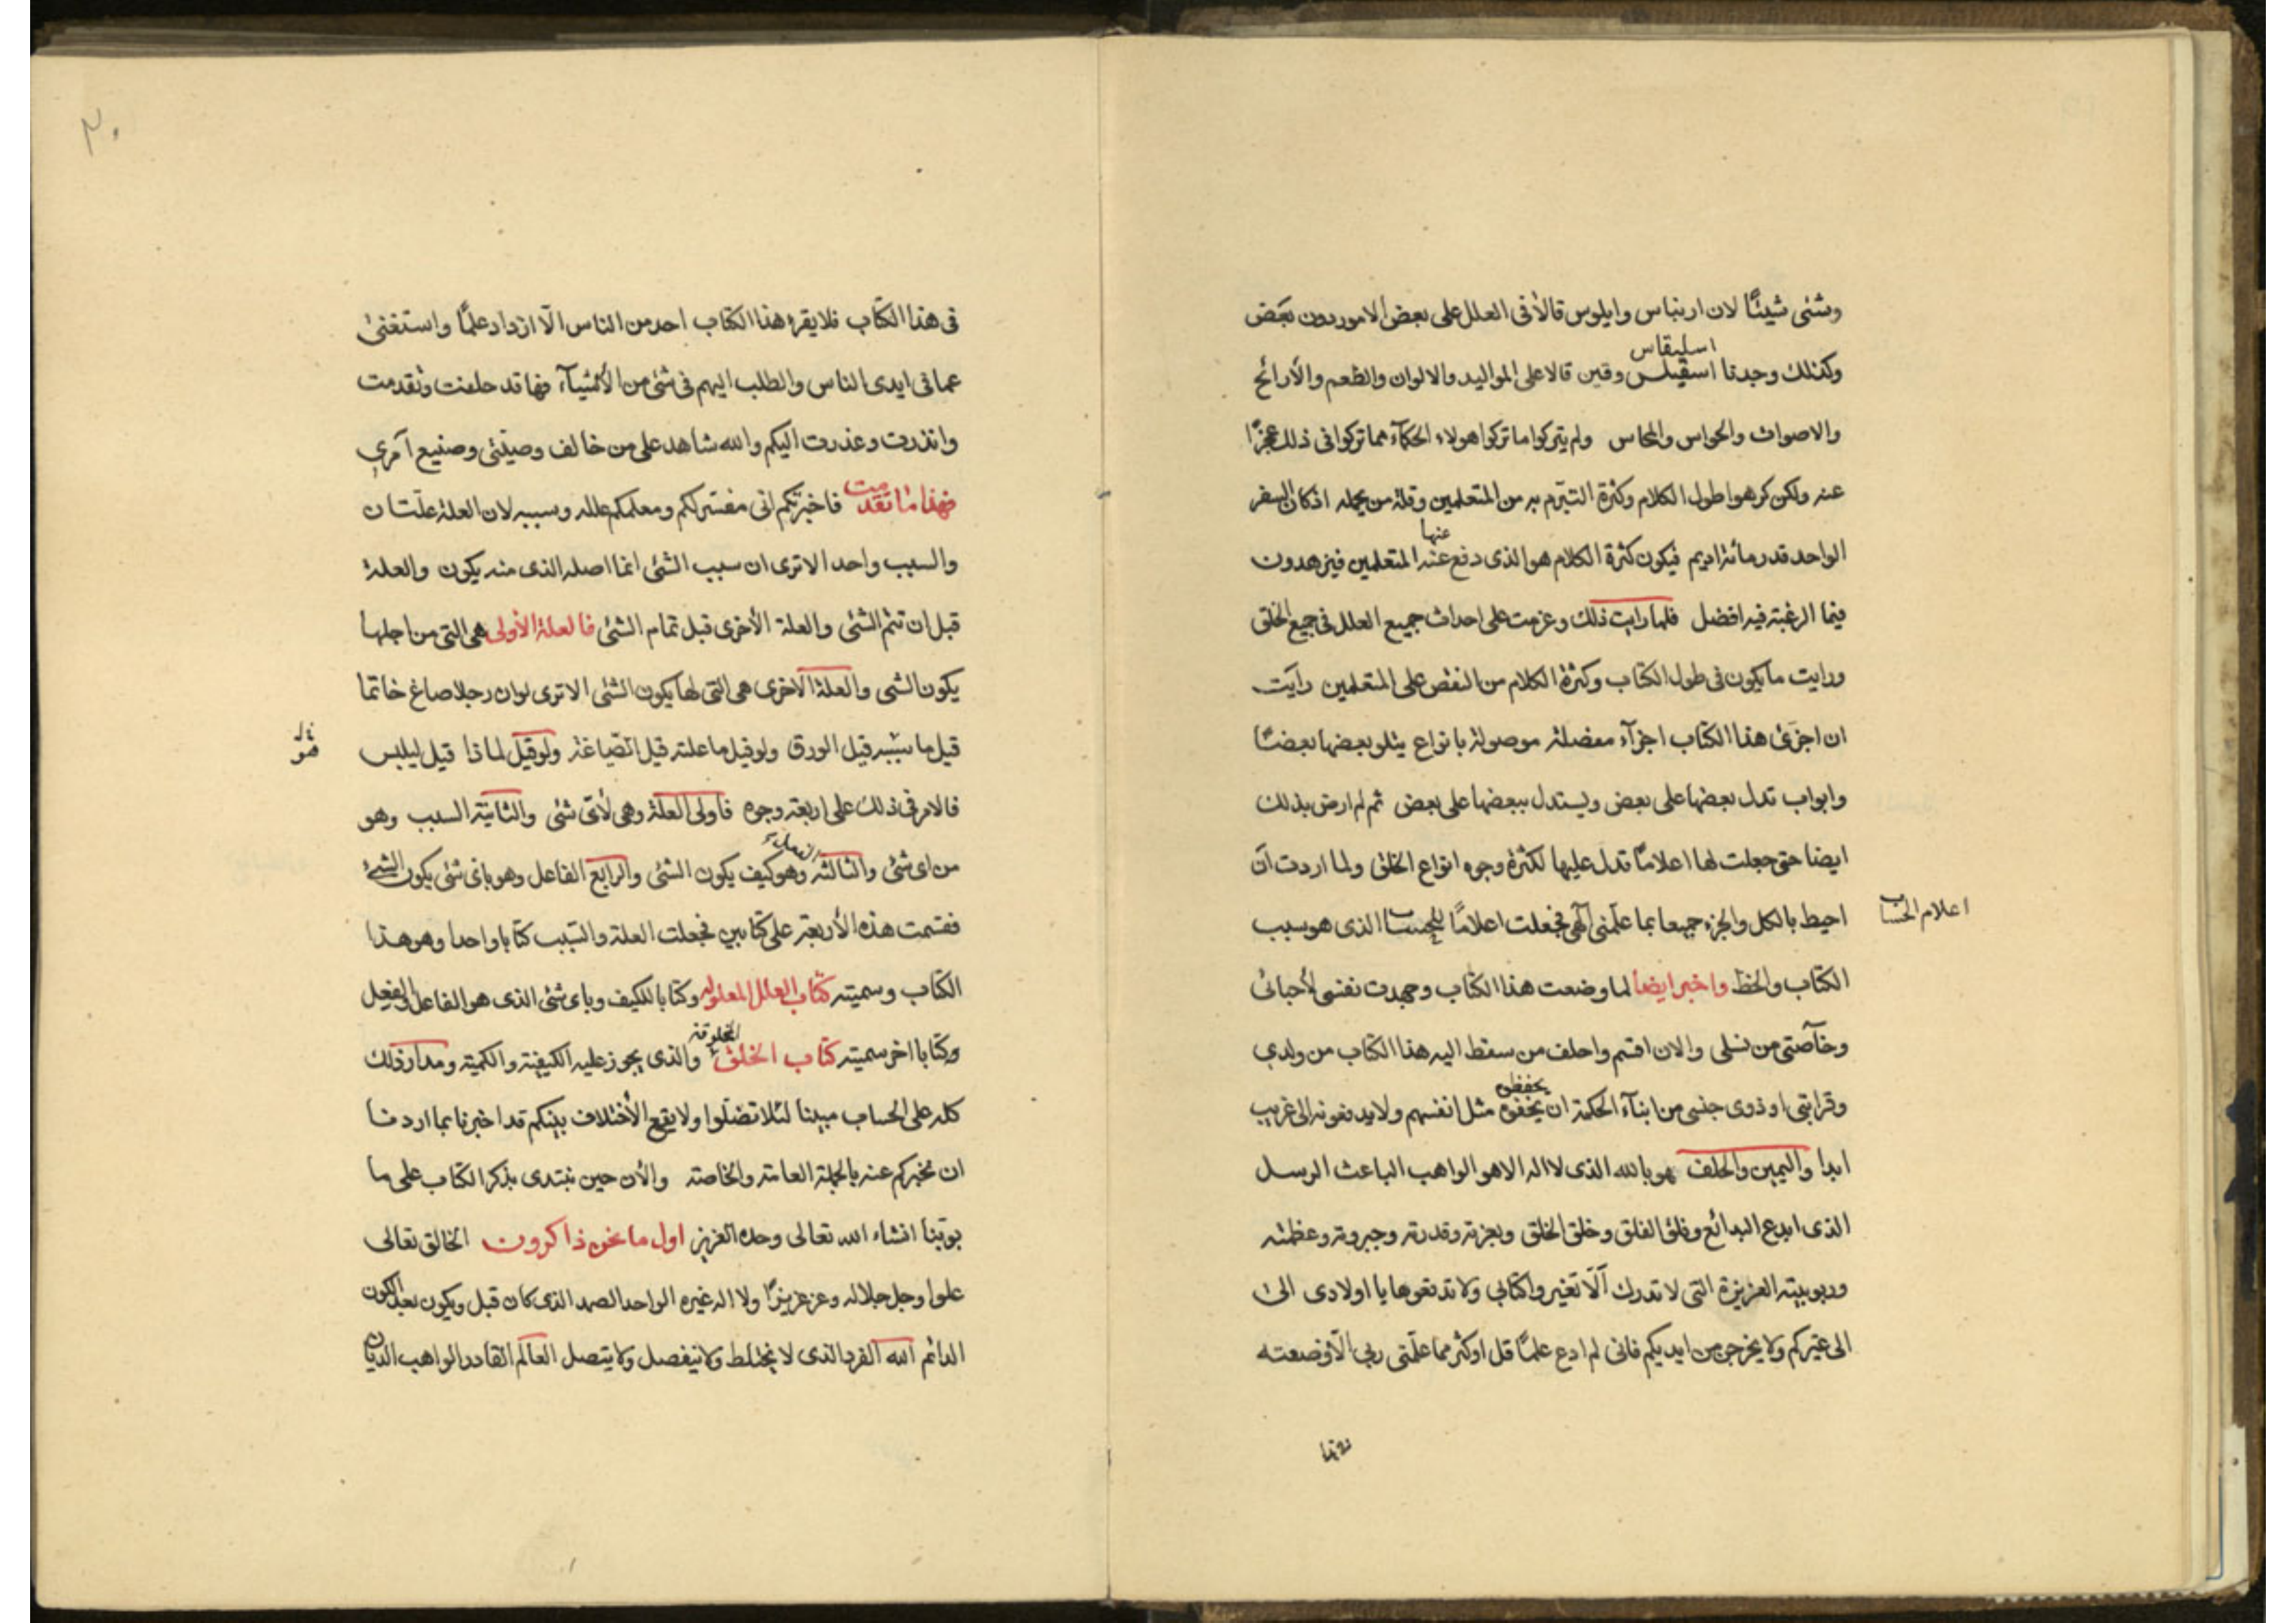 وشئى شيئًا لان ارنباس وايلوس قالا فى العلل على بعض الامور دون بعض
اسليقاس
وكذلك وجدنا اسقيلس وقين قالا على المواليد والالوان والطعم والأرائح
والاصوات والحواس والمحاس ولم يتركوا ما تركوا هولاء الحكمآء مما تركوا فى ذلك عجزًا
عنه ولكن كرهوا طول الكلام وكثرة التبرّم به من المتعلمين وقلة من يحمله اذ كان السفر
عنها
الواحد قدر مائة اديم فيكون كثرة الكلام هو الذى دفع عنه المتعلمين فيزهدون
فيما الرغبة فيه افضل فلما رايت ذلك وعزمت على احداث جميع العلل فى جميع الخلق
ورايت ما يكون فى طول الكتاب وكثرة الكلام من النقص على المتعلمين رايت
ان اجزئ هذا الكتاب اجزآء مفصلة موصولة بانواع يتلو بعضها بعضًا
وابواب تدل بعضها على بعض ويستدل ببعضها على بعض ثم لم ارض بذلك
ايضا حتى جعلت لها اعلامًا تدل عليها لكثرة وجوه انواع الخلق ولما اردت ان
احيط بالكل والجزء جميعا بما علّمنى آلهى فجعلت اعلامًا للحساب الذى هو سبب
اعلام الحساب
الكتاب والخط واخبر ايضا لما وضعت هذا الكتاب وجهدت نفسى لأحبائى
وخآصتى من نسلى والان اقسم واحلف من سقط اليه هذا الكتاب من ولدي
يحفظوه
وقرابتى او ذوى جنسى من ابنآء الحكمة ان يخفوه مثل انفسهم ولا يدفعونه الى غريب
ابدا واليمين والحلف هو بالله الذى لا اله الا هو الواهب الباعث الرسل
الذى ابدع البدائع وفلق الفلق وخلق الخلق وبعزته وقدرته وجبروته وعظمته
وربوبيته العزيزة التى لا تدرك آلّا تغيروا كتابى ولا تدفعوها يا اولادى الى
الى غيركم ولا يخرجن من ايديكم فانى لم ادع علمًا قل او كثر مما علّمنى ربى الّا وضعته
٣٠
فى هذا الكتاب فلا يقرء هذا الكتاب احد من الناس الّا ازداد علمًا واستغنى
عما فى ايدى الناس والطلب اليهم فى شئ من الأشيآء فها قد حلفت وتقدمت
وانذرت وعذرت اليكم والله شاهد على من خالف وصيّتى وصنيع آمري
فهذا ما تقدمت فاخبرتكم انى مفسر لكم ومعلمكم علله وسببه لان العلة علّتان
والسبب واحد الا ترى ان سبب الشئى انما اصله الذى منه يكون والعلة
قبل ان تتم الشئى والعلة الأخرى قبل تمام الشئى فالعلة الأولى هى التى من اجلها
يكون الشى والعلة الاخرى هى التى لها يكون الشئى الا ترى لو ان رجلا صاغ خاتما
قيل ما سببه قيل الورق ولو قيل ما علته قيل الصّياغة ولو قيل لماذا قيل ليلبس
فالامر فى ذلك على اربعة وجوه فاولى العلة وهى لأىّ شئى والثانية السبب وهو
من اى شئى والثالثه وهو كيف يكون الشئى والرابع الفاعل وهو باى شئى يكون الشئ
فقسمت هذه الأربعة على كتابين فجعلت العلة والسّبب كتابا واحدا وهو هذا
الكتاب وسميته كتاب العلل المعلوله وكتابا للكيف وباى شئى الذى هو الفاعل والفعل
المخلوقة
وكتابا اخر سميته كتاب الخلق والذى يجوز عليه الكيفية والكمية ومدار ذلك
كله على الحساب مبينا لئلا تضلّوا ولا يقع الأختلاف بينكم قد اخبرنا بما اردنا
ان نخبركم عنه بالجملة العامة والخاصة والأن حين نبتدى بذكر الكتاب على ما
بوّبنا انشاء الله تعالى وحده العزيز اول ما نحن ذاكرون الخالق تعالى
علوا وجل جلاله وعز عزيزًا ولا اله غيره الواحد الصمد الذى كان قبل ويكون بعد الكون
الدائم الله الفرد الذى لا يختلط ولا ينفصل ولا يتصل العالم القادر الواهب الديّان